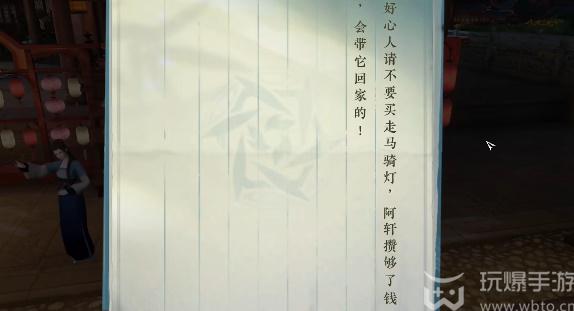 好心人请不要买走马骑灯，阿轩攒够了钱
，会带它回家的！
玩爆手游
www.wbto.cn